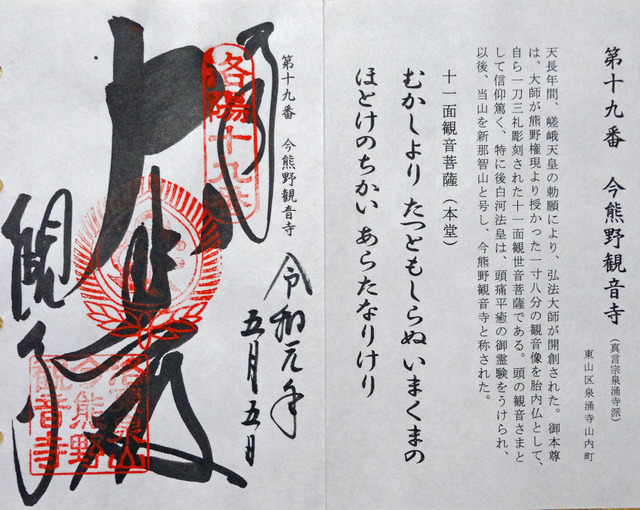 第十九番　今熊野観音寺
（真言宗泉涌寺派）
東山区泉涌寺山内町
天長年間、嵯峨天皇の勅願により、弘法大師が開創された。御本尊
は、大師が熊野権現より授かった一寸八分の観音像を胎内仏として、
自ら一刀三礼彫刻された十一面観世音菩薩である。頭の観音さまと
して信仰篤く、特に後白河法皇は、頭痛平癒の御霊験をうけられ、
以後、当山を新那智山と号し、今熊野観音寺と称された。
十一面観音菩薩（本堂）
むかしより たつともしらぬ いまくまの
ほとけのちかい あらたなりけり
第十九番　今熊野観音寺
令和元年
五月五日
洛陽十九番
観音寺
今熊野